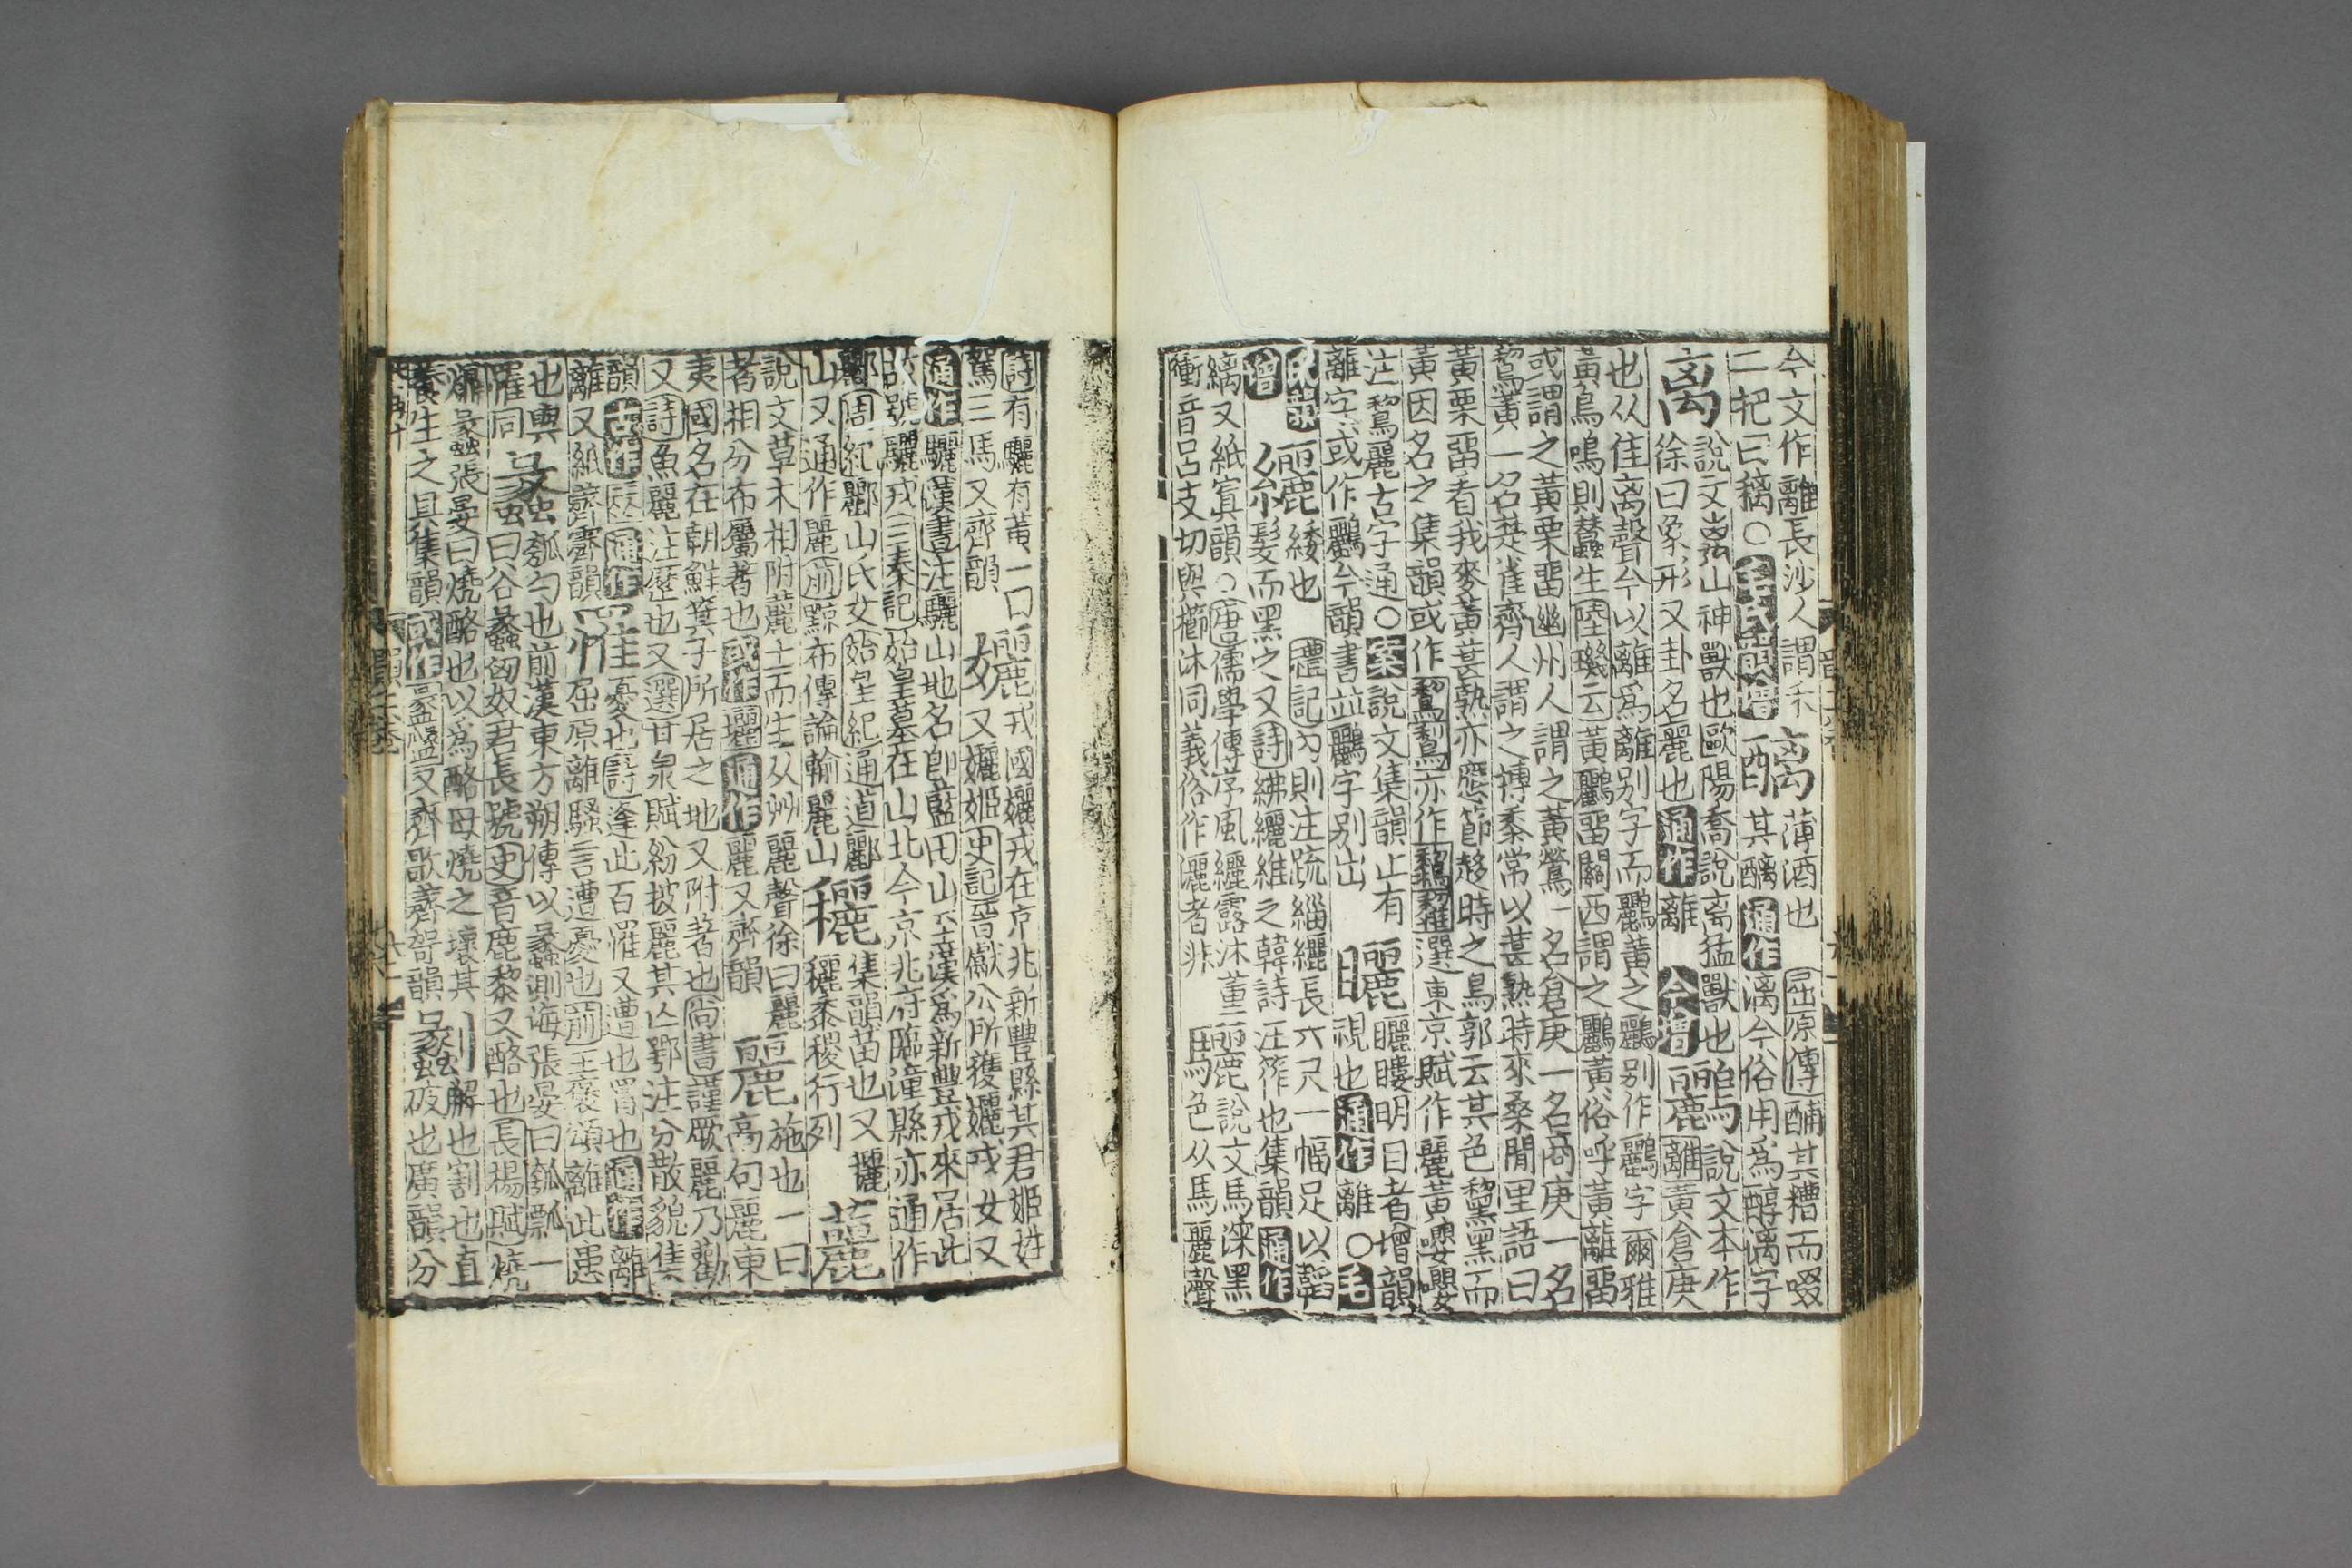 今文作離長沙人謂禾
二把曰穲○毛氏韻增
醨薄酒也屈原傳餔其糟而啜
其醨通作漓今俗用爲醇漓字
离說文禼山神獸也歐陽喬說离猛獸也
徐曰象形又卦名麗也通作離
鸝說文本作
今增離黃倉庚
也从隹离聲今以離爲離别字而鸝黃之鸝别作鸝字爾雅
黃鳥鳴則蠶生陸璣云黃鸝畱關西謂之鸝黃俗呼黃離畱
或謂之黃栗畱幽州人謂之黃鶯一名倉庚一名商庚一名
鵹黃一名楚雀齊人謂之搏黍常以葚熟時來桑閒里語曰
黃栗畱看我麥黃葚熟亦應節趍時之鳥郭云其色黧黑而
黃因名之集韻或作鵹鴷亦作鶞選東京賦作麗黃嚶嚶
注鵹麗古字通○案說文集韻止有
離字或作鸝今韻書並鸝字别出
矖矖瞜明目者增韻
視也通作離○毛
氏韻
增
纚緌也禮記内則注䟽緇纚長六尺一幅足以韜
髮而黑之又詩紼纚維之韓詩注筰也集韻通作
縭又紙寘韻○唐儒學傳序風纚露沐董
衝音吕支切與櫛沐同義俗作灑者非
驪說文馬深黑
色从馬麗聲
詩有驪有黃一曰
駕三馬又齊韻
孋戎國孋戎在京兆新豐縣其君姬姓
又孋姬史記晉獻公所獲孋戎女又
通作驪漢書注驪山地名卽藍田山至漢爲新豐戎來居此
故號驪戎三秦記始皇墓在山北今京兆府臨潼縣亦通作
酈周紀酈山氏女始皇紀通道酈
山又通作麗前黥布傳論輸麗山
穲集韻苗也又
穲黍稷行列
蘺
說文草木相附蘺土而生从艸麗聲徐曰麗
者相分布屬著也或作䕻通作麗又齊韻
麗施也一曰
高句麗東
夷國名在朝鮮箕子所居之地又附著也尚書謹厥麗乃勸
又詩魚麗注歷也又選甘泉賦紛披麗其亾鄂注分散貌集
韻古作丽通作
離又紙薺霽韻
罹憂也詩逢此百罹又遭也罥也通作離
屈原離騷言遭憂也前王襃頌離此患
也與
罹同
蠡瓠勺也前漢東方朔傳以蠡測海張晏曰瓠瓢一
曰谷蠡匈奴君長號史音鹿黎又酪也長楊賦燒
熐蠡張晏曰燒酪也以爲酪母燒之壞其
養生之具集韻或作㼖又齊歌薺哿韻
劙解也割也直
破也廣韻分